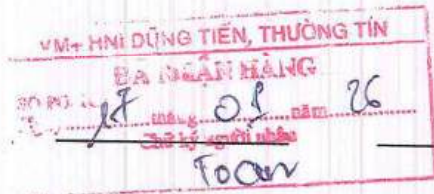 VM+ HNI DŨNG TIẾN, THƯỜNG TÍN
ĐÃ NHẬN HÀNG
17 tháng 01 năm 26
Chữ ký người nhận
Toan